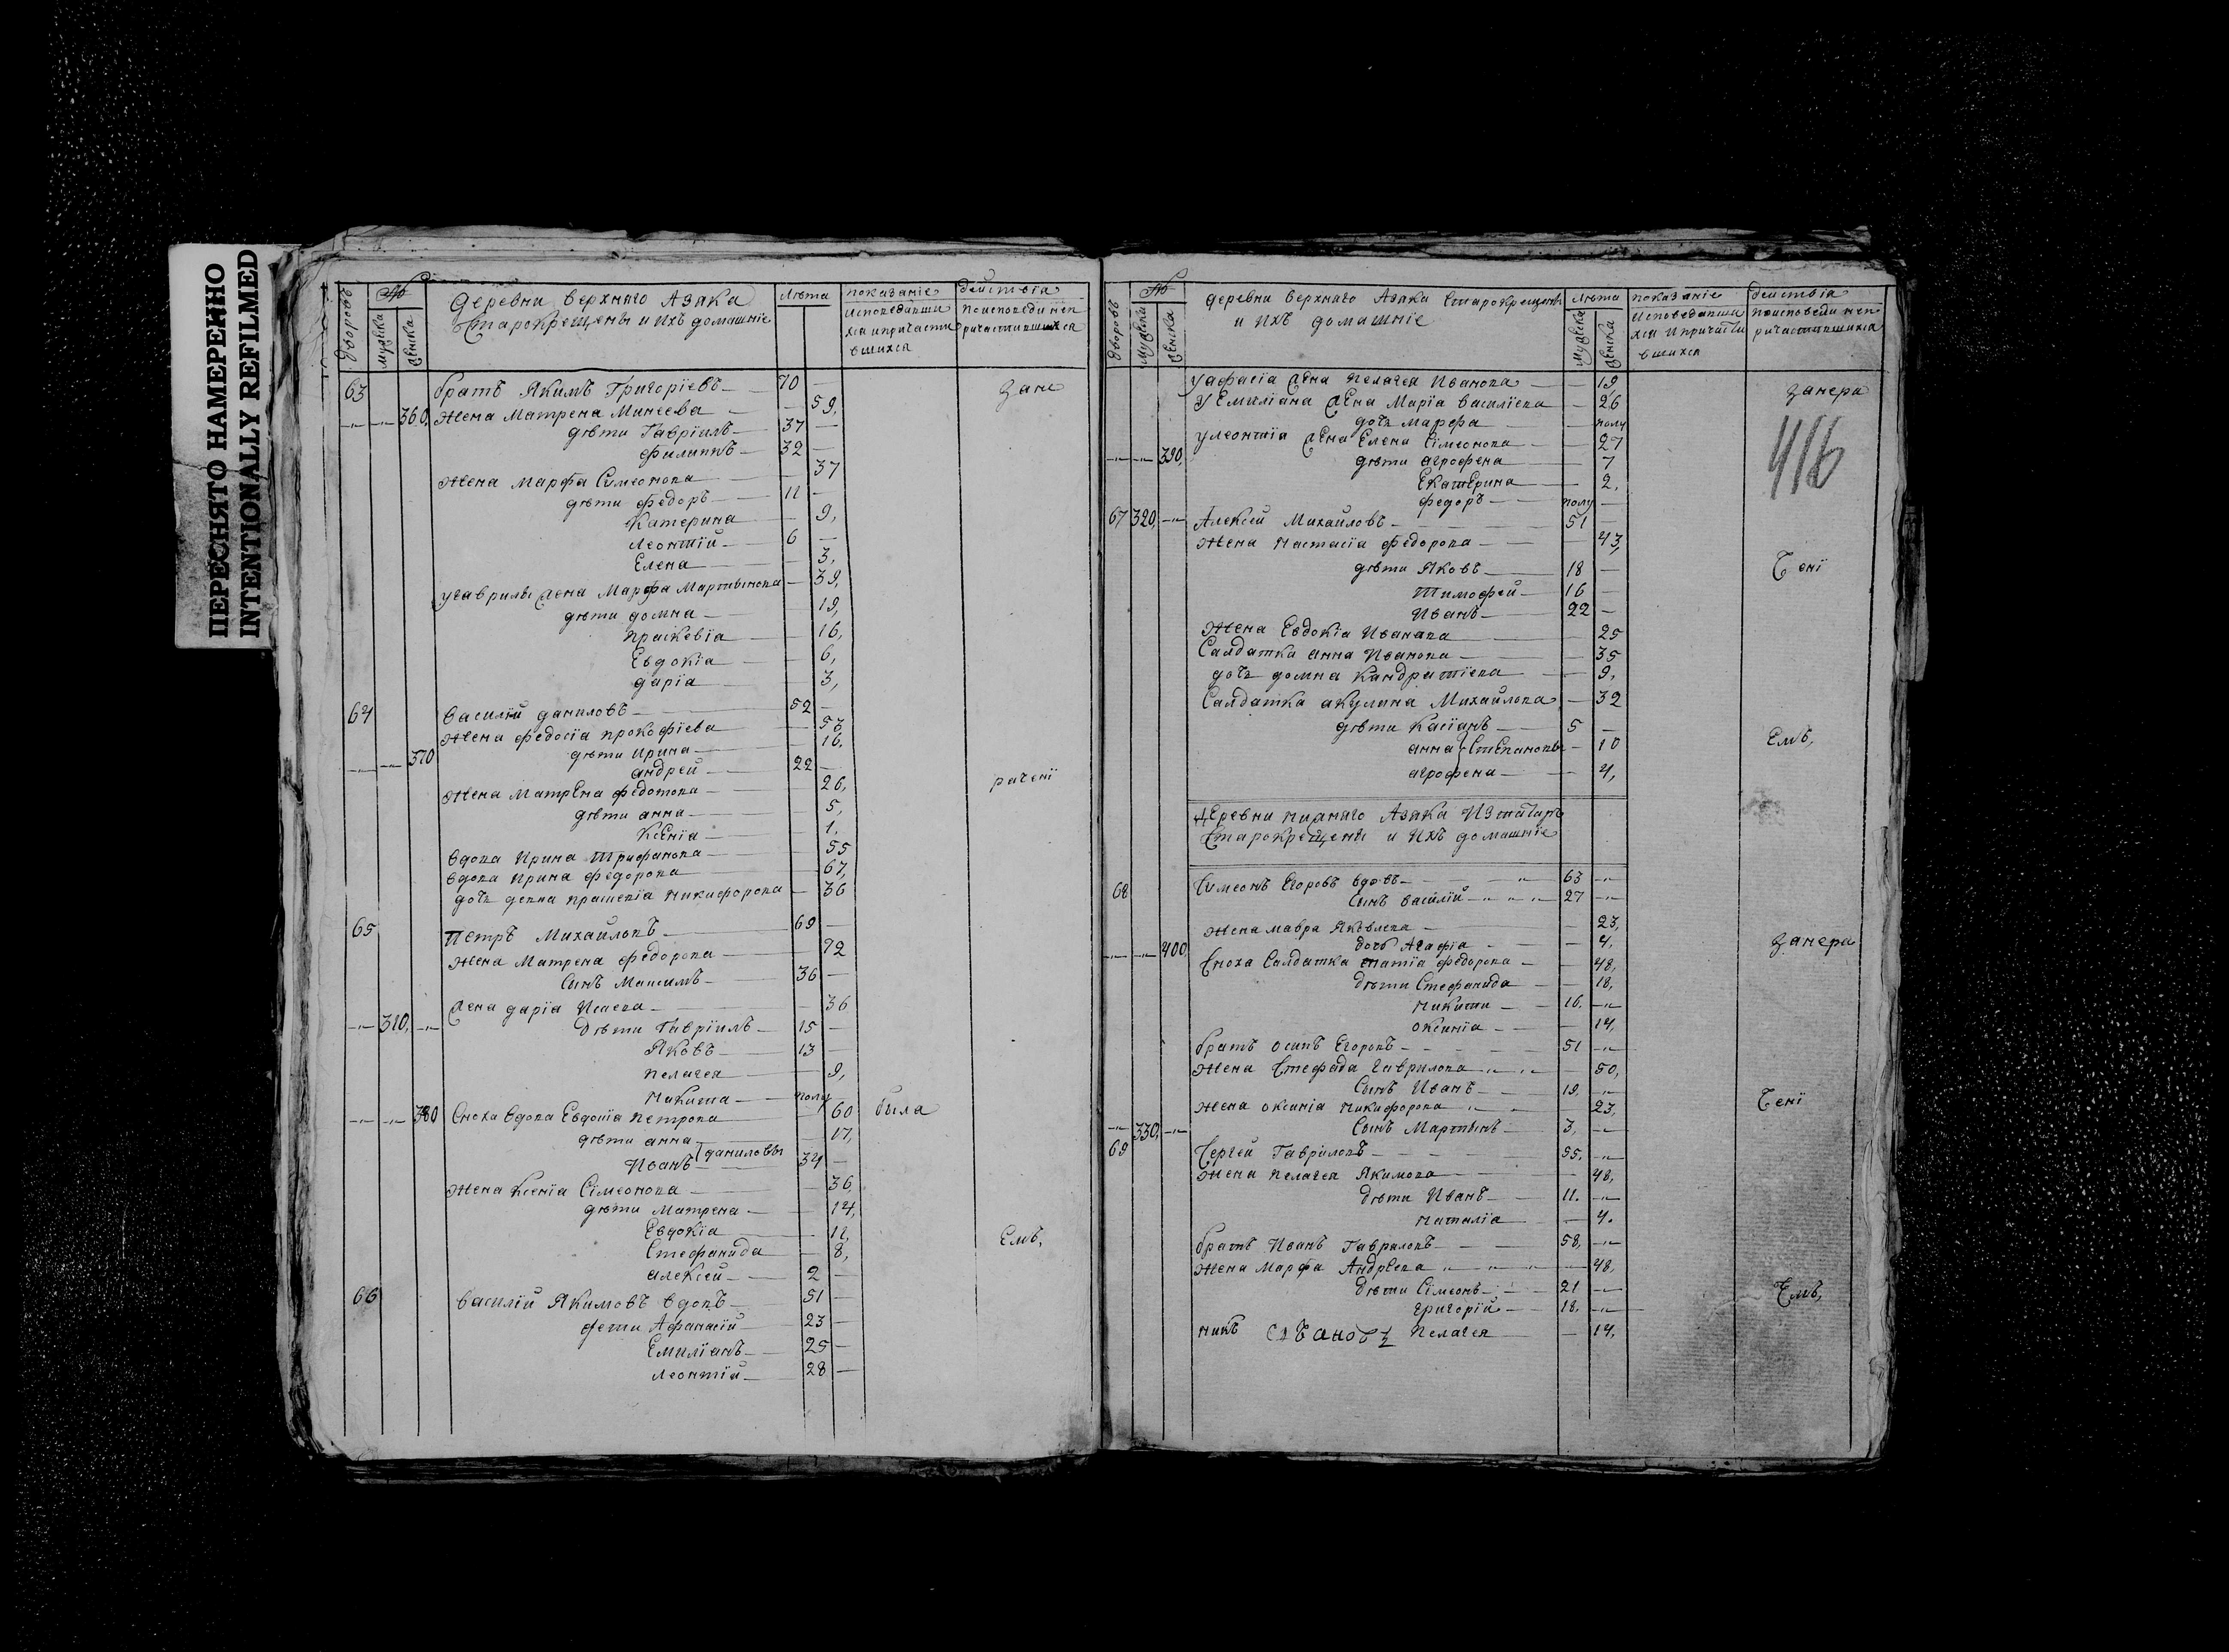 ПЕРЕСНЯТО НАМЕРЕННО
INTENTIONALLY REFILMED
дворовъ
№
мужска
женска
Деревни верхняго Азяка
Старокрещены и ихъ домашніе
Лѣта
показаніе
действія
Исповедавши
хся и причасти
вшихся
По исповеди неп
ричастившихся
63 братъ Якимъ Григоріевъ 70
Зане
360, жена Матрена Минеева 59,
дѣти Гавріилъ 37
Филиппъ 32
жена Марфа Симеонова 37
дѣти Федоръ 11
Катерина 9,
Леонтій 6
Елена 3,
У Гаврилы жена Марфа Мартынова 39,
дѣти домна 19,
праскевіа 16,
Евдокіа 6,
даріа 3,
64 Василій даниловъ 52
жена федосіа прокофіева 53
дѣти Ирина 16,
370 андрей 22
рачені
жена Матрена федотова 26,
дѣти анна 5,
Ксеніа 1,
вдова Ирина Трифанова 55
вдова Ирина федорова 67,
дочь девка Никифорова 36
65 Петръ Михайловъ 69
жена Матрена федорова 72
Сынъ Максимъ 36
жена даріа Исаева 36
310, Дѣти Гавріилъ 15
Яковъ 13
пелагея 9,
Никита полу
380 Сноха вдова Евдокіа петрова 60 была
дѣти анна 17,
Иванъ даниловы 34
жена Ксеніа Сімеонова 36,
дѣти Матрена 14,
Евдокіа 12,
Стефанида 8,
Емъ,
алексей 2
66 Василий Якимовъ вдовъ 51
дети Афанасій 23
Емиліанъ 25
Леонтій 28
дворовъ
№
мужска
женска
деревни верхняго Азяки Старокрещены
и ихъ домашніе
Лѣта
мужска
женска
показаніе
действіа
Исповедавши
хся и причасти
вшихся
По исповеди неп
ричастившихся
У афасіа жена пелагея Иванова 19
занера
У Емиліана жена Маріа василіева 26
дочь Марфа полу
416
У леонтіа жена Елена Сімеонова 27
390, дѣти агрофена 7
Екатерина 2,
федоръ полу
67 320, Алексей Михайловъ 51
жена Настасіа федорова 43,
дѣти Яковъ 18
чені
Тимофей 16
Иванъ 22
жена Евдокіа Иванова 25
Салдатка анна Иванова 35
дочь домна Кандратіева 9,
Салдатка акулина Михайлова 32
дѣти Касіанъ 5
анна Степановы 10
Емъ,
агрофена 4,
Деревни нижняго Азяка Изтатаръ
Старокрещены и ихъ домашніе
68 Симеонъ Егоровъ вдовъ 63
Сынъ василій 27
жена мавра Яковлева 23,
400, дочь Агафіа 4,
занера
Сноха Салдатка федорова 48,
Дѣти Стефанида 18,
Никита 16.
оксиніа 14,
братъ осипъ Егоровъ 51
жена Стефада Гаврилова 50,
Сынъ Иванъ 19,
жена оксиніа Никифорова 23,
чені
330, Сынъ Мартынъ 3,
69 Сергей Гавриловъ 55,
жена пелагея Якимова 48,
Дѣти Иванъ 11.
Наталіа 4.
братъ Иванъ Гавриловъ 58,
жена Марфа Андреева 48,
Дѣти Сімеонъ 21
Емъ,
григорій 18,
никъ Пелагея 14,